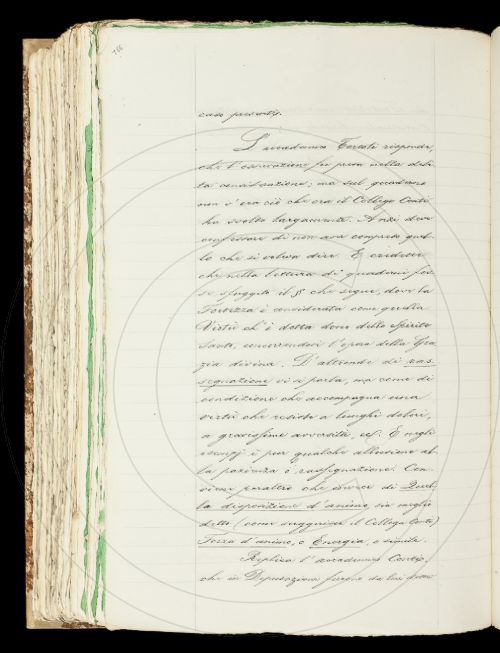 766
caso presente.
L'accademico Tortoli risponde,
che l'osservazione fu presa nella debi-
ta considerazione; ma sul quaderno
non v'era ciò che ora il Collega Conti
ha svolto largamente. Anzi deve
confessare di non aver compreso quel-
lo che si voleva dire. E crederei
che nella lettura di quaderni fos-
se sfuggito il § che segue, dove la
Fortezza è considerata come quella
Virtù ch'è detta dono dello Spirito
Santo, concorrendovi l'opera della Gra-
zia divina. D'altronde di ras-
segnazione vi si parla, ma come di
condizione che accompagna una
virtù che resiste a lunghi dolori,
a gravissime avversità, ec. E negli
esempj v'è pur qualche allusione al-
la pazienza o rassegnazione. Con-
viene peraltro che invece di Quel-
la disposizione d'animo, sia meglio
detto, (come suggerisce il Collega Conti)
Forza d'animo, o Energia, o simile.
Replica l'accademico Conti,
che in Deputazione furono da lui